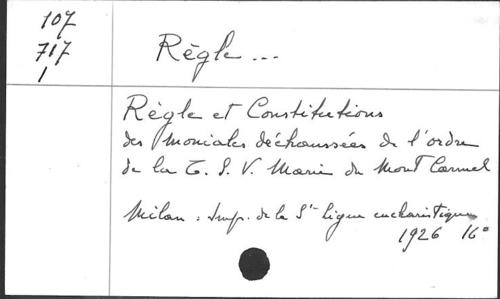 107
717
1
Règle...
Règle et Constitutions
des moniales déchaussées de l'ordre
de la T. S. V. Marie du Mont Carmel
Milan : Imp. de la Ste Ligue eucharistique
1926 16°